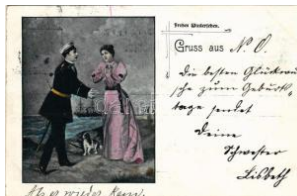 Frohes Wiedersehen.
Gruss aus N. O.
Die besten Glückwün-
sche zum Geburts-
tage sendet
Deine
Schwester
Lisbeth